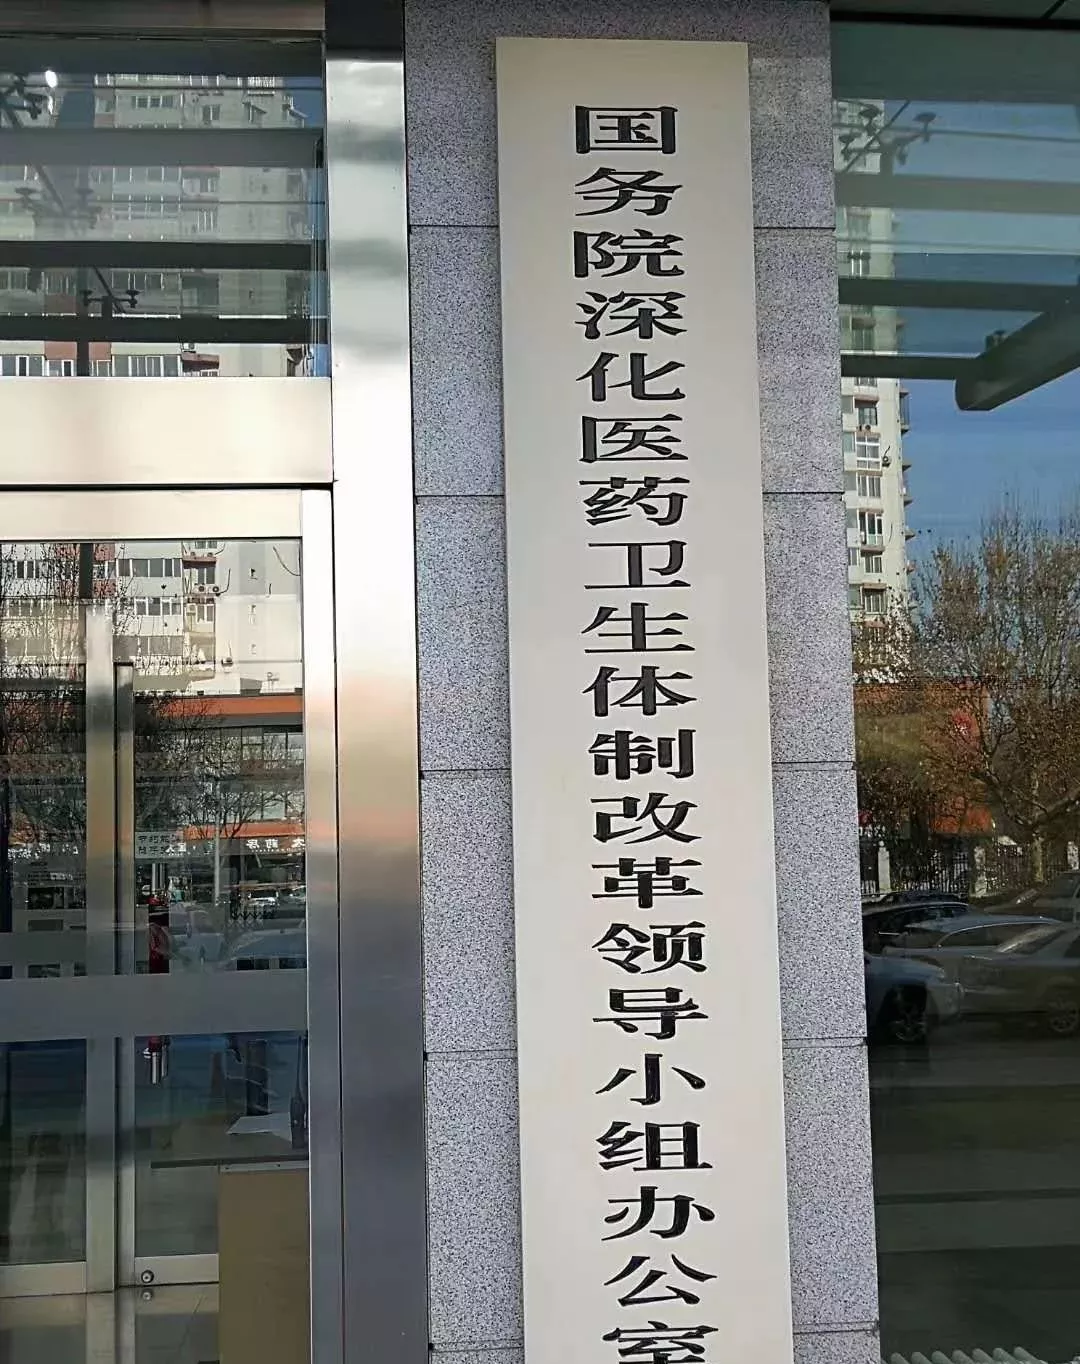 国务院深化医药卫生体制改革领导小组办公室